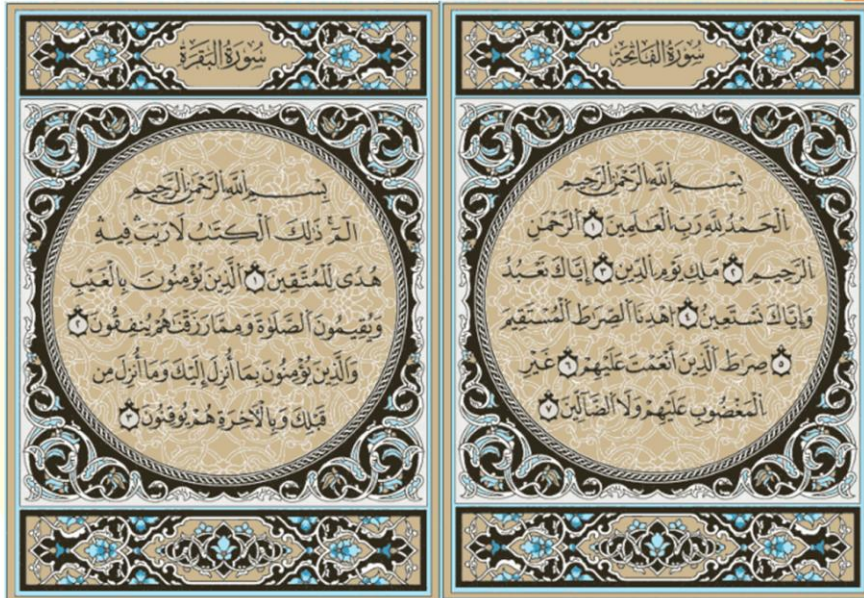 سُورَةُ الفَاتِحَةِ
بِسْمِ اللَّهِ الرَّحْمَٰنِ الرَّحِيمِ
اَلْحَمْدُ لِلَّهِ رَبِّ الْعَالَمِينَ ١ الرَّحْمَٰنِ
الرَّحِيمِ ٢ مَلِكِ يَوْمِ الدِّينِ ٣ إِيَّاكَ نَعْبُدُ
وَإِيَّاكَ نَسْتَعِينُ ٤ اهْدِنَا الصِّرَاطَ الْمُسْتَقِيمَ
٥ صِرَاطَ الَّذِينَ أَنْعَمْتَ عَلَيْهِمْ ٦ غَيْرِ
الْمَغْضُوبِ عَلَيْهِمْ وَلَا الضَّالِّينَ ٧
سُورَةُ البَقَرَةِ
بِسْمِ اللَّهِ الرَّحْمَٰنِ الرَّحِيمِ
الٓمٓ ذَٰلِكَ الْكِتَٰبُ لَا رَيْبَ فِيهِ
هُدًى لِلْمُتَّقِينَ ١ الَّذِينَ يُؤْمِنُونَ بِالْغَيْبِ
وَيُقِيمُونَ الصَّلَوٰةَ وَمِمَّا رَزَقْنَٰهُمْ يُنفِقُونَ ٢
وَالَّذِينَ يُؤْمِنُونَ بِمَا أُنزِلَ إِلَيْكَ وَمَا أُنزِلَ مِن
قَبْلِكَ وَبِالْآخِرَةِ هُمْ يُوقِنُونَ ٣